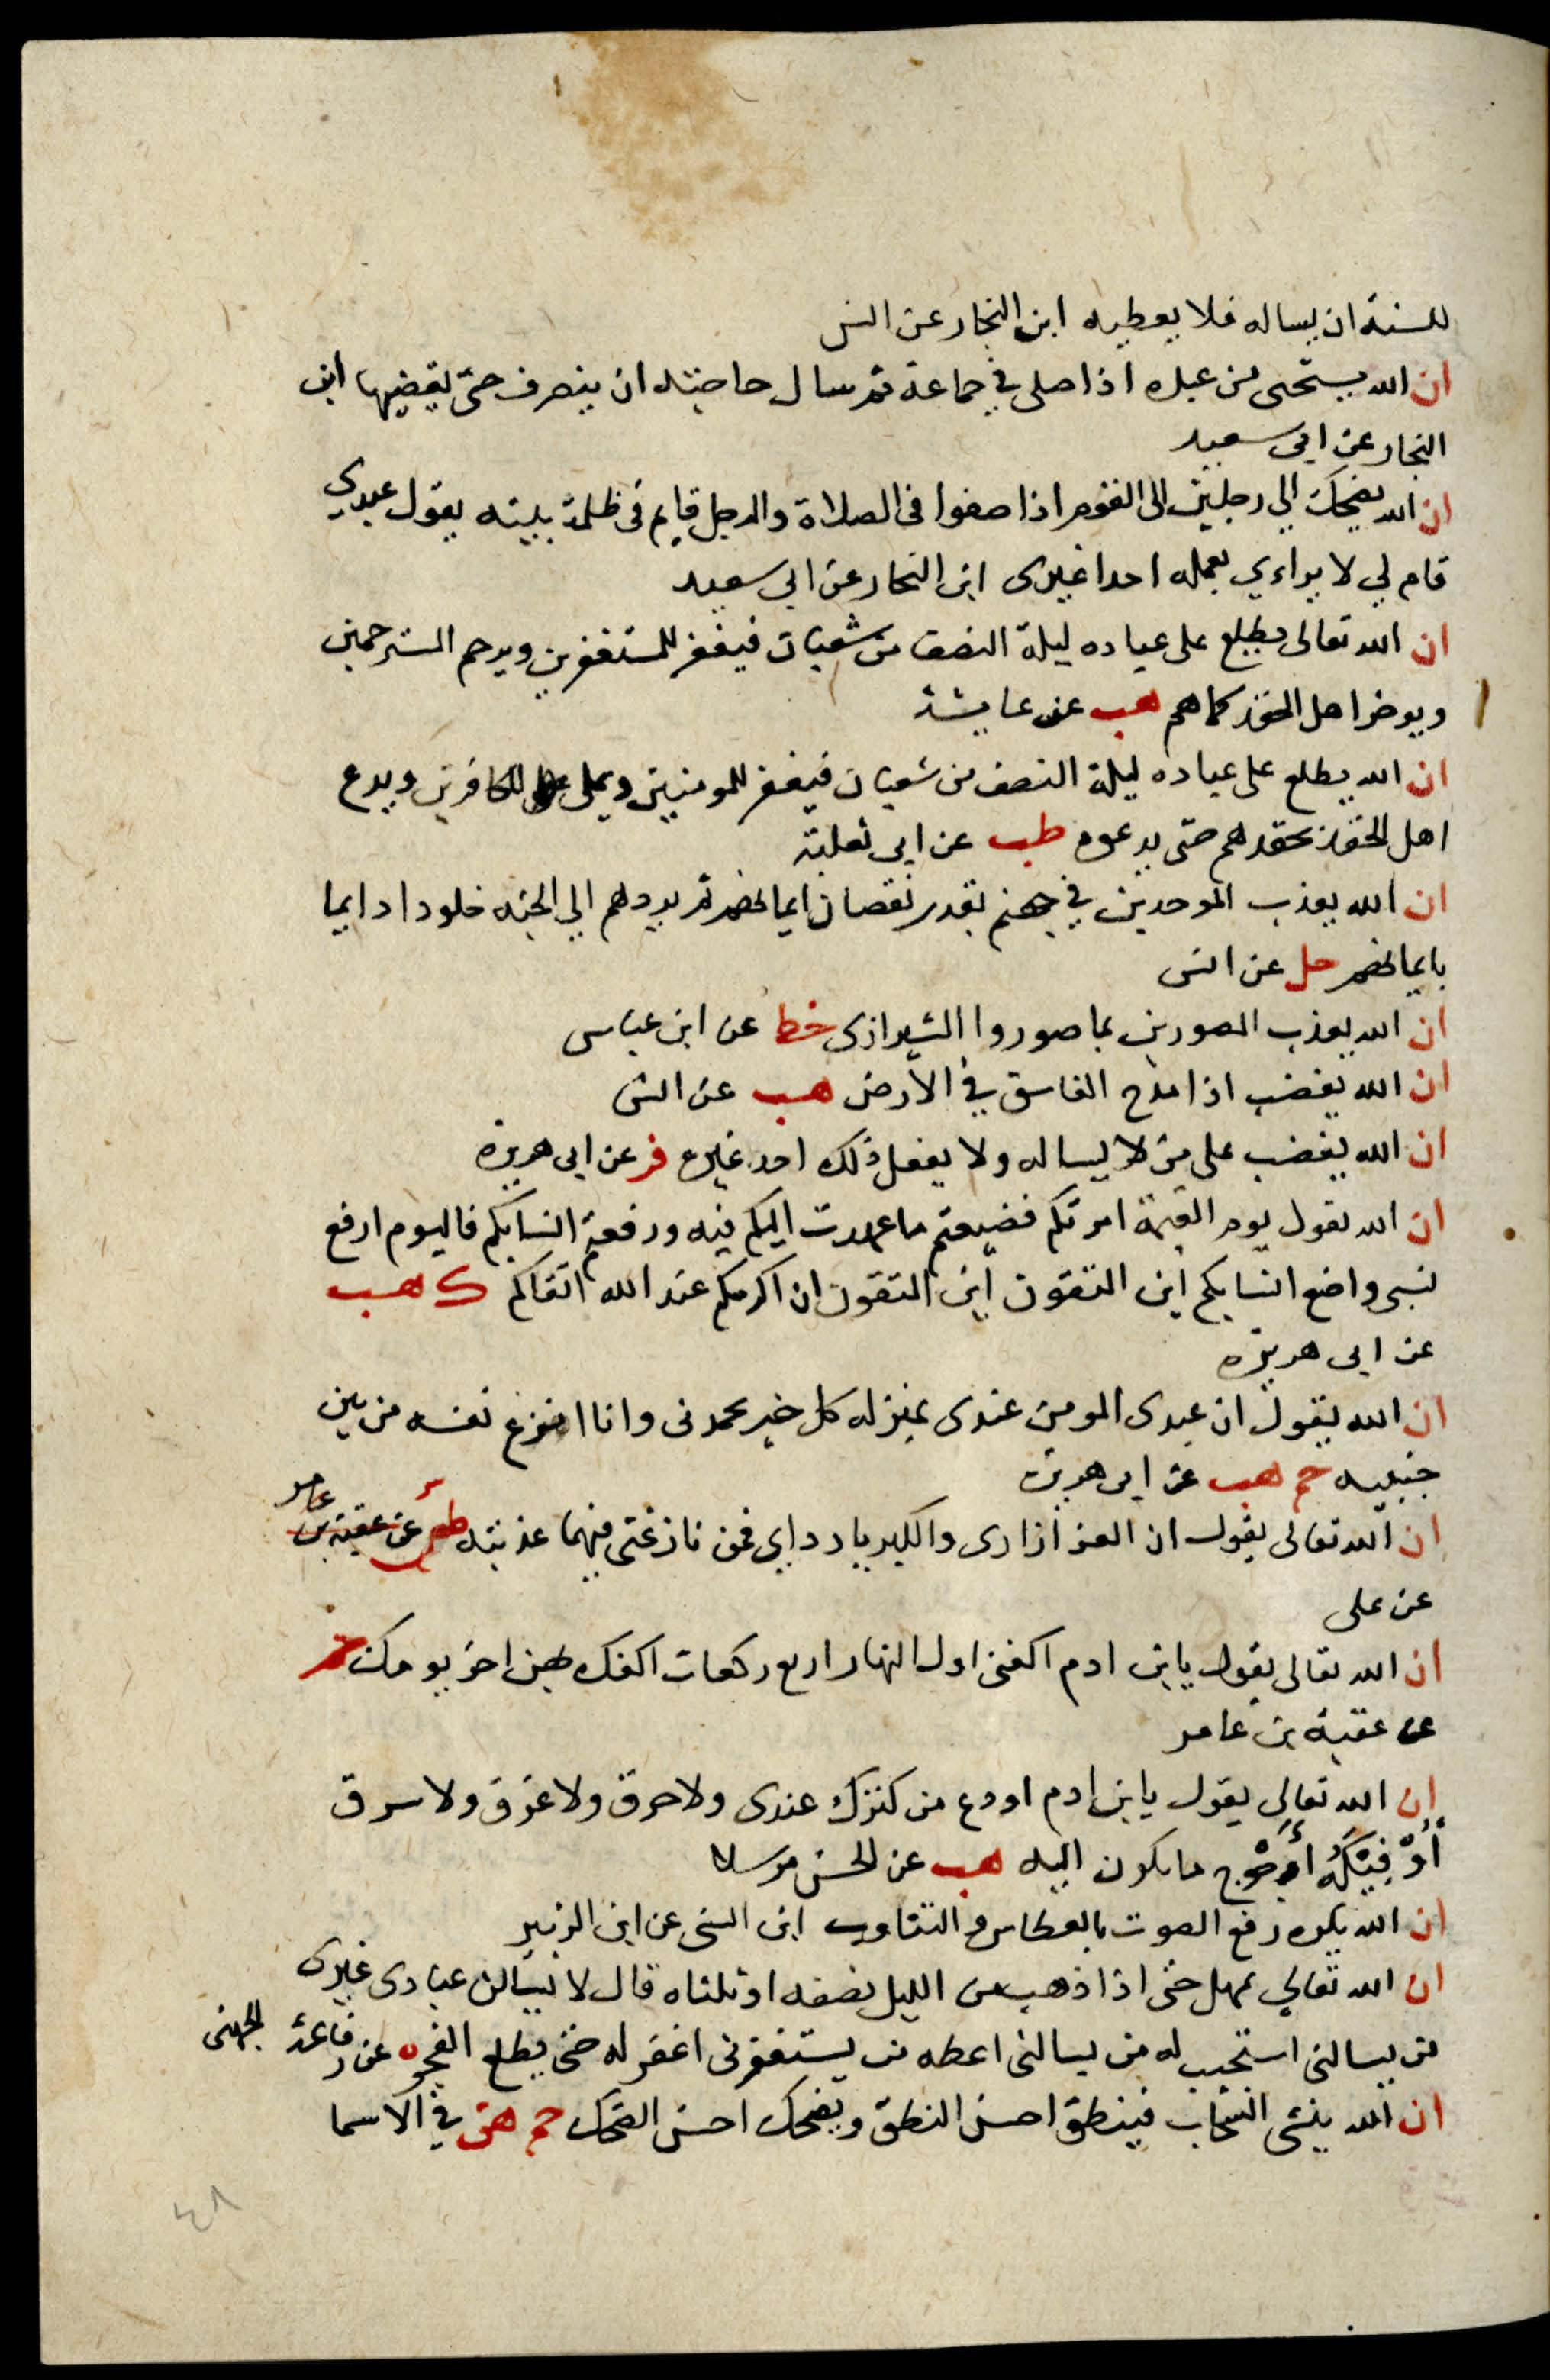 للسنة ان يساله فلا يعطيه ابن النجار عن انس
ان الله يستحى من عبده اذا صلى في جماعة ثم سال حاجته ان ينصرف حتى يقضيها ابن
النجار عن ابى سعيد
ان الله يضحك الي رجلين الى القوم اذا صفوا فى الصلاة والرجل قايم فى ظلمة بيته يقول عبدي
قام لي لا يراءي بعمله احدا غيرى ابن النجار عن ابى سعيد
ان الله تعالى يطلع على عباده ليلة النصف من شعبان فيغفر للمستغفرين ويرحم المسترحمين
ويوخر اهل الحقد كما هم هب عن عايشة
ان الله يطلع على عباده ليلة النصف من شعبان فيغفر للمومنين ويملى للكافرين ويدع
اهل الحقد بحقدهم حتى يدعوه طب عن ابى ثعلبة
ان الله يعذب الموحدين في جهنم بقدر نقصان ايمانهم ثم يردهم الي الجنه خلودا دايما
بايمانهم حل عن انس
ان الله يعذب المصورين بما صوروا الشيرازى خط عن ابن عباس
ان الله يغضب اذا مدح الفاسق في الأرض هب عن انس
ان الله يغضب على من لا يساله ولا يفعل ذلك احد غيره فر عن ابى هريرة
ان الله يقول يوم القيمة امرتكم فضيعتم ما عهدت اليكم فيه ورفعتم انسابكم فاليوم ارفع
نسبى واضع انسابكم اين المتقون اين المتقون ان اكرمكم عند الله اتقاكم ك هب
عن ابى هريره
ان الله يقول ان عبدى المومن عندى بمنزله كل خير يحمدنى وانا انزع نفسه من بين
جنبيه حم هب عن ابى هريرة
ان الله تعالى يقول ان العز ازارى والكبريا ردايى فمن نازعنى فيهما عذبته طس عن عقبة بن عامر
عن على
ان الله تعالى يقول يا ابن ادم اكفنى اول النهار اربع ركعات اكفك بهن اخر يومك حم
عن عقبة بن عامر
ان الله تعالى يقول يا ابن ادم اودع من كنزك عندى ولا حرق ولا غرق ولا سرق
أُوَفِيْكَهُ أحوج ما يكون اليه هب عن الحسن مرسلا
ان الله يكره رفع الصوت بالعطاس والتثاوب ابن السنى عن ابن الزبير
ان الله تعالي يمهل حتى اذا ذهب من الليل نصفه او ثلثاه قال لا يسالن عبادى غيرى
من يسالنى استجيب له من يسالنى اعطه من يستغفرنى اغفر له حتى يطلع الفجر ه عن رفاعة الجهنى
ان الله ينشى السحاب فينطق احسن النطق ويضحك احسن الضحك حم هق في الاسما
٤٨